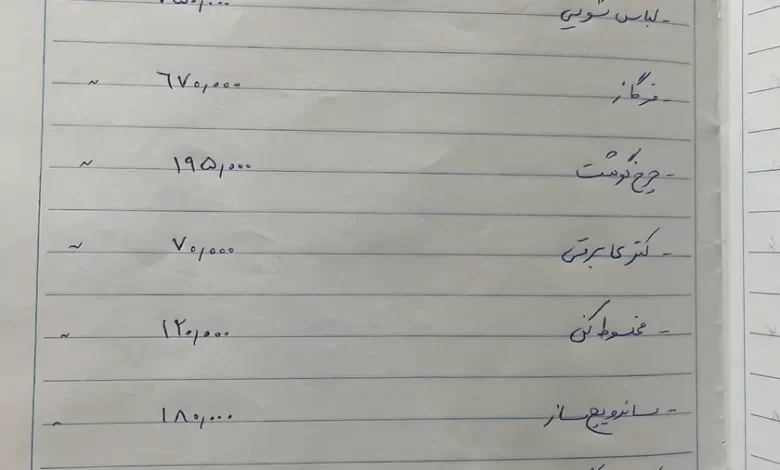 - لباس شویی
- فرگاز ۶۷۰,۰۰۰ ~
- چرخ گوشت ۱۹۵,۰۰۰ ~
- کتری برقی ۷۰,۰۰۰ ~
- مخلوط کن ۱۲۰,۰۰۰ ~
- ساندویچ ساز ۱۸۰,۰۰۰ ~